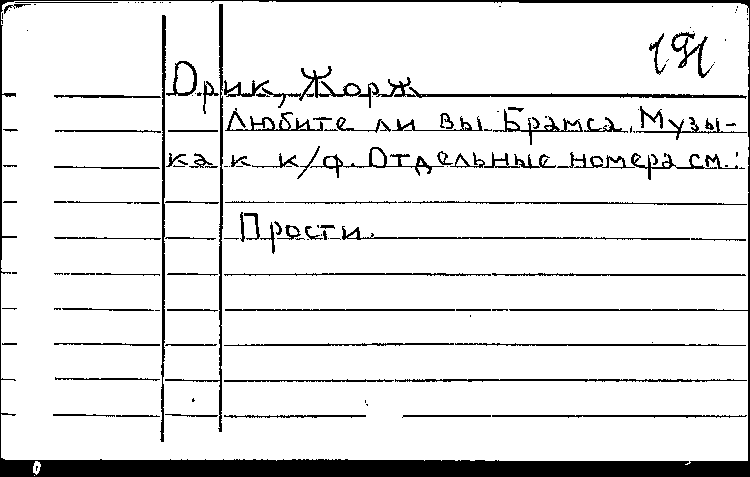 191
Орик, Жорж
Любите ли вы Брамса. Музы-
ка к к/ф. Отдельные номера см.:
Прости.